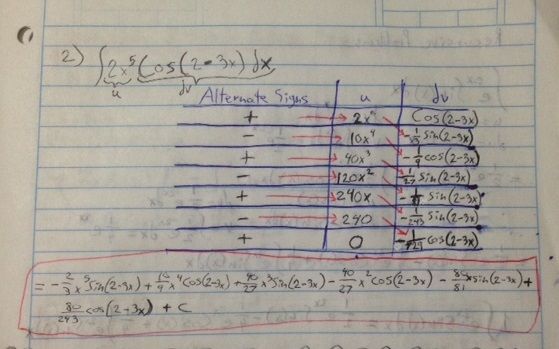 2) ∫2x⁵(cos(2-3x)dx
u dv
Alternate Signs u dv
+ 2x⁵ cos(2-3x)
- 10x⁴ -1/3 sin(2-3x)
+ 40x³ -1/9 cos(2-3x)
- 120x² 1/27 sin(2-3x)
+ 240x sin(2-3x)
- 240 -1/243 sin(2-3x)
+ 0 -1/729 cos(2-3x)
= -2/3 x⁵ sin(2-3x) + 10/9 x⁴ cos(2-3x) + 40/27 x³ sin(2-3x) - 40/27 x² cos(2-3x) - 80/81 x sin(2-3x) +
80/243 cos(2-3x) + C